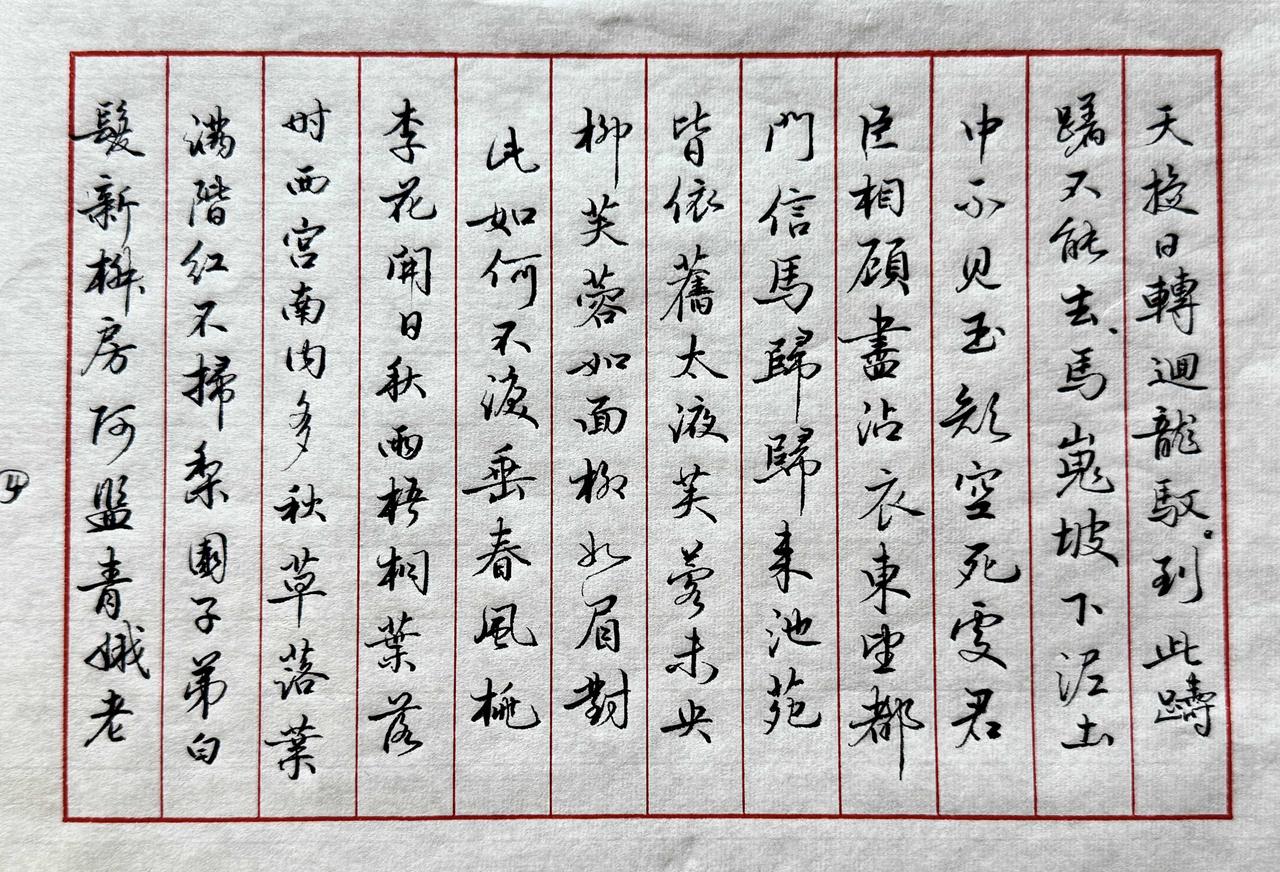 天投日轉迴龍馭到此躊
躇不能去馬嵬坡下泥土
中不见玉颜空死處君
臣相顾盡沾衣東望都
門信馬歸歸来池苑
皆依舊太液芙蓉未央
柳芙蓉如面柳如眉對
此如何不淚垂春風桃
李花開日秋雨梧桐葉落
时西宫南内多秋草落葉
满階红不掃梨園子弟白
髮新椒房阿監青娥老
④